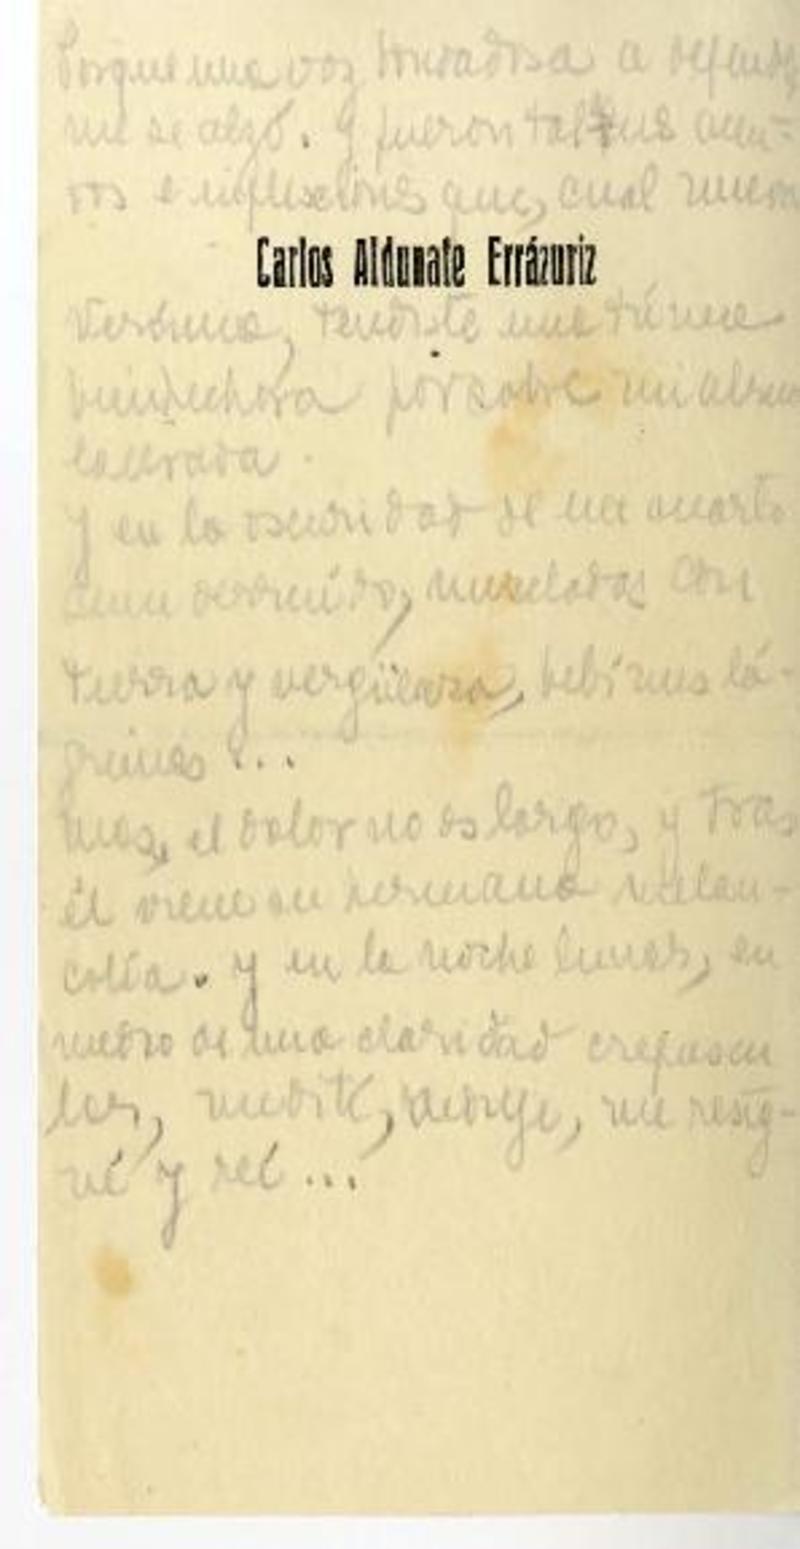 Porque una voz bondadosa a defender
me se alzó. Y fueron tal sus acen-
tos e inflexiones que, cual nueva
Carlos Aldunate Errázuriz
Verónica, tendiste una
bienhechora por sobre mi alma
lacerada.
Y en la oscuridad de un cuarto
semi derruído, mezcladas con
tierra y vergüenza, bebí mis lá-
grimas...
Mas, el dolor no es largo, y tras
él viene su hermana melan-
colía. Y en la noche lunar, en
medio de una claridad crepuscu
lar, medité, me resig-
né y reí...